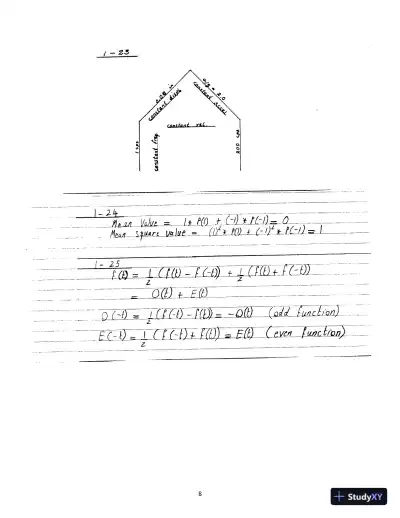 1-23
0.08 in
constant disp.
a/g = 20
constant accel
constant vel.
1 cps
constant freq
200 cps
1-24
Mean Value = 1 * P(1) + (-1) * P(-1) = 0
Mean Square value = (1)² * P(1) + (-1)² * P(-1) = 1
1-25
f(t) = 1/2 (f(t) - f(-t)) + 1/2 (f(t) + f(-t))
= O(t) + E(t)
O(-t) = 1/2 (f(-t) - f(t)) = -O(t) (odd function)
E(-t) = 1/2 (f(-t) + f(t)) = E(t) (even function)
8
StudyXY